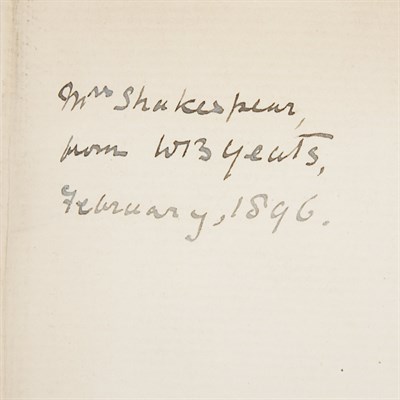 Mrs Shakespear,
from WB Yeats,
February, 1896.